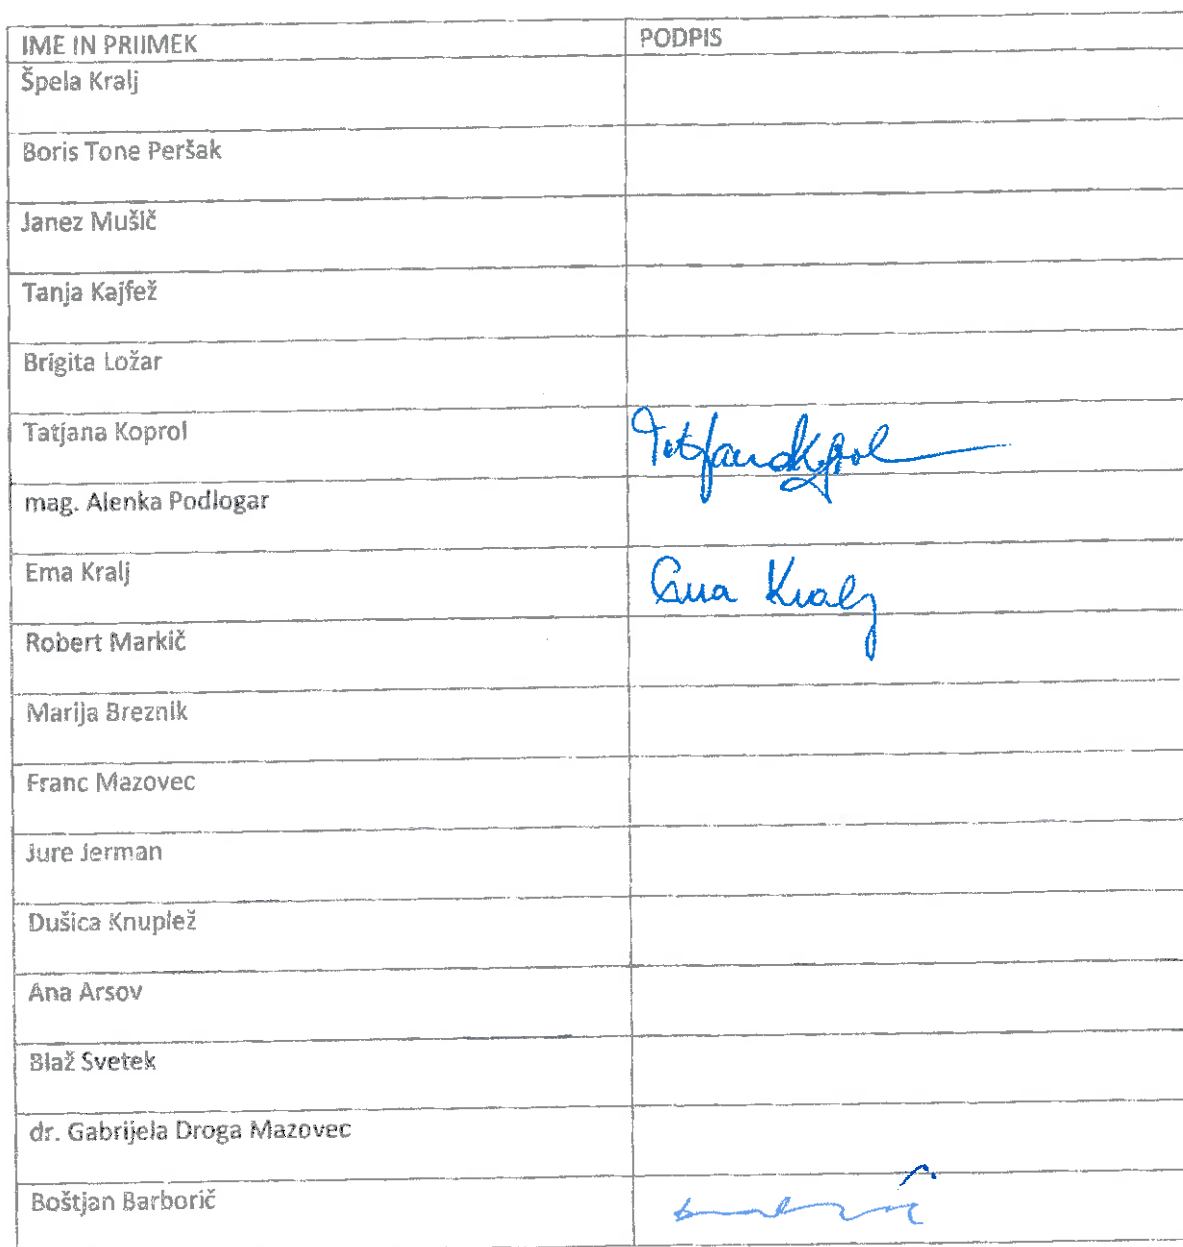 IME IN PRIIMEK PODPIS
Špela Kralj
Boris Tone Peršak
Janez Mušič
Tanja Kajfež
Brigita Ložar
Tatjana Koprol
mag. Alenka Podlogar
Ema Kralj Ema Kralj
Robert Markič
Marija Breznik
Franc Mazovec
Jure Jerman
Dušica Knuplež
Ana Arsov
Blaž Svetek
dr. Gabrijela Droga Mazovec
Boštjan Barborič